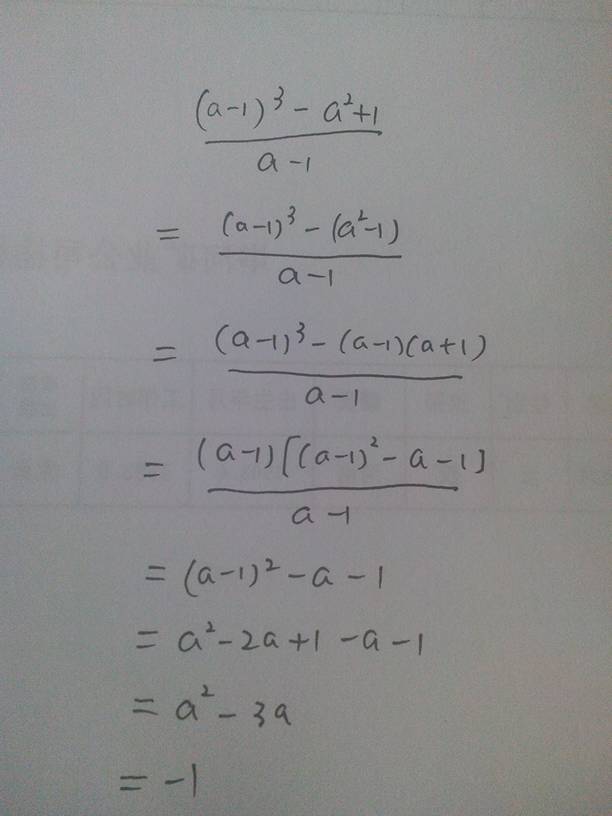 (a-1)³ - a²+1
a-1
= (a-1)³ - (a²-1)
a-1
= (a-1)³ - (a-1)(a+1)
a-1
= (a-1)[(a-1)² - a - 1]
a-1
= (a-1)² - a - 1
= a² - 2a + 1 - a - 1
= a² - 3a
= -1